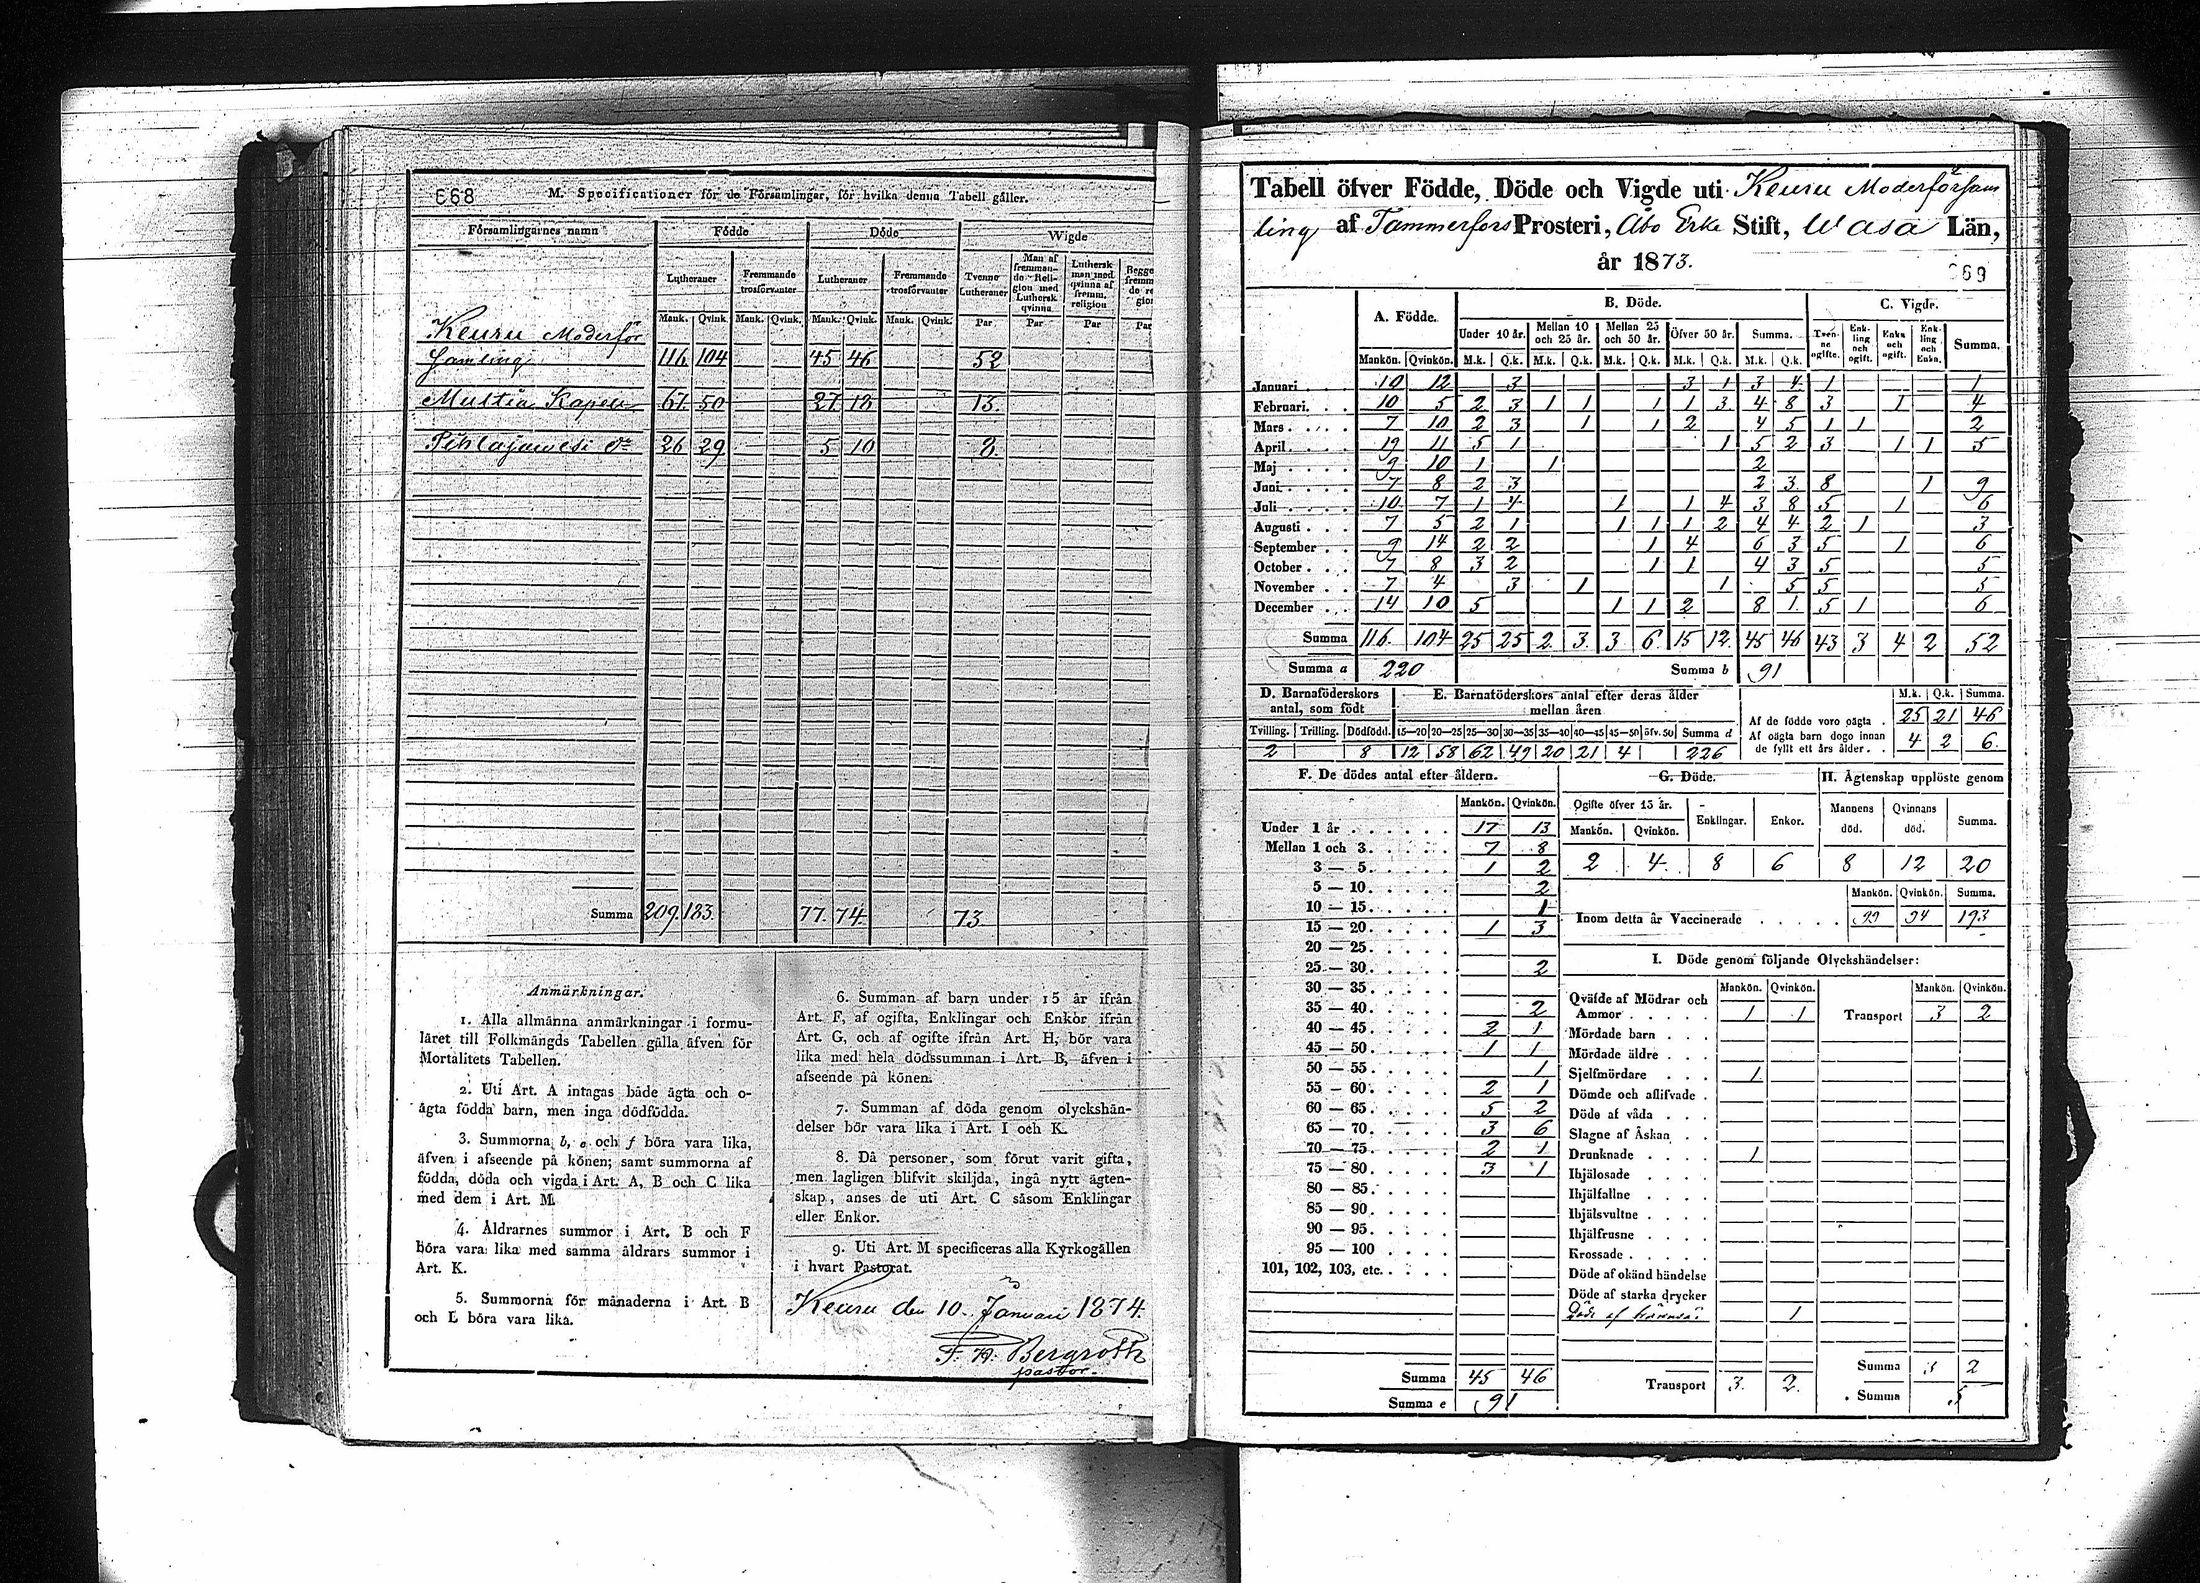 668
M. Specificationer för de Församlingar, för hvilka denna Tabell gäller.
Församlingarnes namn Födde Döde Wigde
Lutheraner Fremmande trosförvanter Lutheraner Fremmande trosförvanter Tvenne Lutheraner Man af fremmande Religion med Luthersk qvinna Luthersk man med qvinna af fremm. religion
Mank. Qvink. Mank. Qvink. Mank. Qvink. Mank. Qvink. Par Par Par Par
Keuru Moderför
samling 116 104 45 46 52
Multia Kapell 67 50 27 18 13
Pihlajavesi do 26 29 5 10 8
Summa 209 183 77 74 73
Anmärkningar.
1. Alla allmänna anmärkningar i formu-
läret till Folkmängds Tabellen gälla äfven för
Mortalitets Tabellen.
2. Uti Art. A intagas både ägta och o-
ägta födda barn, men inga dödfödda.
3. Summorna b, e och f böra vara lika,
äfven i afseende på könen; samt summorna af
födda, döda och vigda i Art. A, B och C lika
med dem i Art. M.
4. Åldrarnes summor i Art. B och F
böra vara lika med samma åldrars summor i
Art. K.
5. Summorna för månaderna i Art. B
och L böra vara lika.
6. Summan af barn under 15 år ifrån
Art. F, af ogifta, Enklingar och Enkor ifrån
Art. G, och af ogifte ifrån Art. H, bör vara
lika med hela dödssumman i Art. B, äfven i
afseende på könen.
7. Summan af döda genom olyckshän-
delser bör vara lika i Art. I och K.
8. Då personer, som förut varit gifta,
men lagligen blifvit skiljda, ingå nytt ägten-
skap, anses de uti Art. C såsom Enklingar
eller Enkor.
9. Uti Art. M specificeras alla Kyrkogällen
i hvart Pastorat.
Keuru den 10. Januari 1874.
F. H. Bergroth
pastor.
Tabell öfver Födde, Döde och Vigde uti Keuru Moderförsam
ling af Tammerfors Prosteri, Åbo Erke Stift, Wasa Län,
år 1873.
669
A. Födde. B. Döde. C. Vigde.
Under 10 år. Mellan 10 och 25 år. Mellan 25 och 50 år. Öfver 50 år. Summa. Tvenne ogifte. Enkling och ogift. Enka och ogift. Enkling och Enka. Summa.
Mankön. Qvinkön. M.k. Q.k. M.k. Q.k. M.k. Q.k. M.k. Q.k. M.k. Q.k.
Januari 10 12 3 3 1 3 4 1 1
Februari 10 5 2 3 1 1 1 1 3 4 8 3 1 4
Mars 7 10 2 3 1 1 2 4 5 1 1 2
April 19 11 5 1 1 5 2 3 1 1 5
Maj 9 10 1 1 2
Juni 7 8 2 3 2 3 8 1 9
Juli 10 7 1 4 1 1 4 3 8 5 1 6
Augusti 7 5 2 1 1 1 1 2 4 4 2 1 3
September 9 14 2 2 1 4 6 3 5 1 6
October 7 8 3 2 1 1 4 3 5 5
November 7 4 3 1 1 5 5 5
December 14 10 5 1 1 2 8 1 5 1 6
Summa 116 104 25 25 2 3 3 6 15 12 45 46 43 3 4 2 52
Summa a 220 Summa b 91
D. Barnaföderskors antal, som födt
Tvilling. Trilling. Dödfödd.
2 8
E. Barnaföderskors antal efter deras ålder mellan åren
15—20 20—25 25—30 30—35 35—40 40—45 45—50 öfv. 50 Summa d
12 58 62 49 20 21 4 226
M.k. Q.k. Summa.
Af de födde voro oägta 25 21 46
Af oägta barn dogo innan
de fyllt ett års ålder 4 2 6
F. De dödes antal efter åldern.
Mankön. Qvinkön.
Under 1 år 17 13
Mellan 1 och 3 7 8
3 — 5 1 2
5 — 10 2
10 — 15 1
15 — 20 1 3
20 — 25
25 — 30 2
30 — 35
35 — 40 2
40 — 45 2 1
45 — 50 1 1
50 — 55 1
55 — 60 2 1
60 — 65 5 2
65 — 70 3 6
70 — 75 2 1
75 — 80 3 1
80 — 85
85 — 90
90 — 95
95 — 100
101, 102, 103, etc.
Summa 45 46
Summa e 91
G. Döde.
Ogifte öfver 15 år. Enklingar. Enkor.
Mankön. Qvinkön.
2 4 8 6
H. Ägtenskap upplöste genom
Mannens död. Qvinnans död. Summa.
8 12 20
Mankön. Qvinkön. Summa.
Inom detta år Vaccinerade 99 94 193
I. Döde genom följande Olyckshändelser:
Mankön. Qvinkön. Mankön. Qvinkön.
Qväfde af Mödrar och
Ammor 1 1 Transport 3 2
Mördade barn
Mördade äldre
Sjelfmördare 1
Dömde och aflifvade
Döde af våda
Slagne af Åskan
Drunknade 1
Ihjälosade
Ihjälfallne
Ihjälsvultne
Ihjälfrusne
Krossade
Döde af okänd händelse
Döde af starka drycker
Döde af 1
Transport 3 2 Summa 3 2
Summa 5